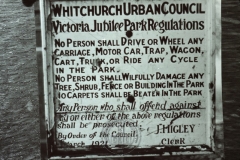 WHITCHURCH URBAN COUNCIL
Victoria Jubilee Park Regulations
NO PERSON SHALL DRIVE OR WHEEL ANY
CARRIAGE, MOTOR CAR, TRAP, WAGON,
CART, TRUCK, OR RIDE ANY CYCLE
IN THE PARK.
NO PERSON SHALL WILFULLY DAMAGE ANY
TREE, SHRUB, FENCE OR BUILDING IN THE PARK
NO CARPETS SHALL BE BEATEN IN THE PARK
Any Person who shall offend against
any or either of the above regulations
shall be prosecuted.
By Order of the Council. J. HIGLEY
March 1921. Clerk